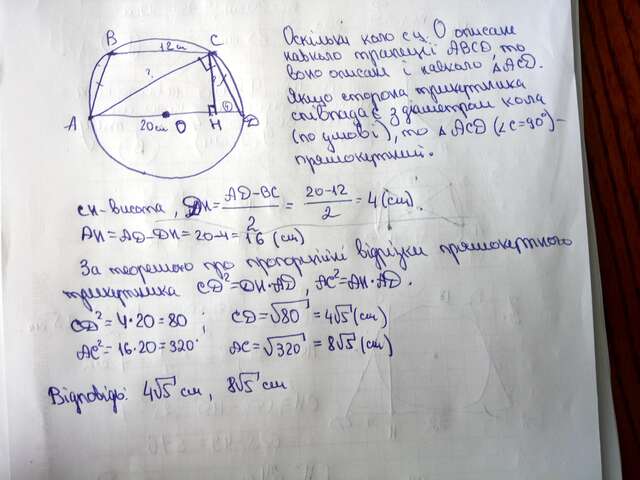 B
C
12см
?
?
A
20см
O
H
D
Оскільки коло с ц. О описане
навколо трапеції ABCD, то
воно описане і навколо △ACD.
Якщо сторона трикутника
співпадає з діаметром кола
(по умові), то △ACD (∠C=90°) –
прямокутний.
CH-висота, DH = AD-BC/2 = 20-12/2 = 4 (см).
AH = AD-DH = 20-4 = 16 (см)
За теоремою про пропорційні відрізки прямокутного
трикутника CD² = DH·AD, AC² = AH·AD.
CD² = 4·20 = 80 ; CD = √80 = 4√5 (см)
AC² = 16·20 = 320 AC = √320 = 8√5 (см)
Відповідь: 4√5 см, 8√5 см